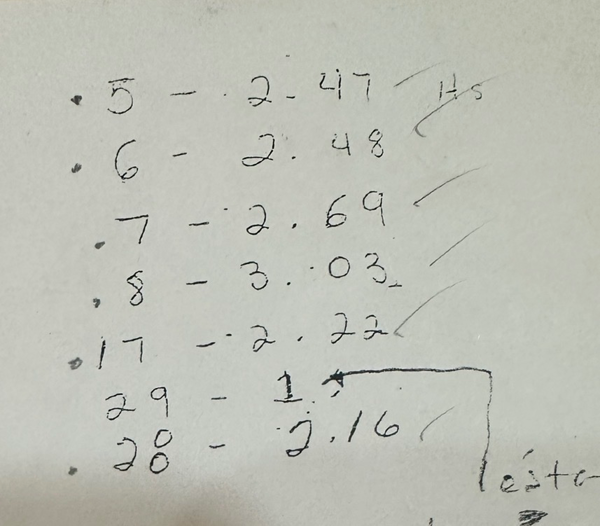 . 5 - 2.47 Hs
. 6 - 2.48
. 7 - 2.69
. 8 - 3.03
. 17 - 2.22
29 - 1.
. 28 - 2.16
esta